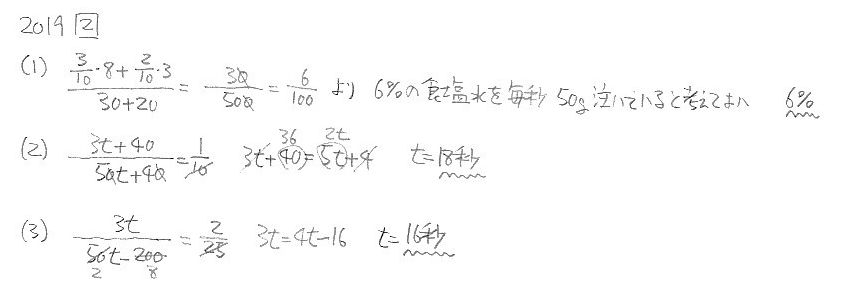 2019 2
(1) (3/10・8+2/10・3)/(30+20) = 30/500 = 6/100 より 6%の食塩水を毎秒50g注いでいると考えてよい 6%
(2) (3t+40)/(50t+40) = 1/10 3t+40=5t+4 36 2t t=18秒
(3) 3t/(50t-200) = 2/25 2 8 3t=4t-16 t=16秒